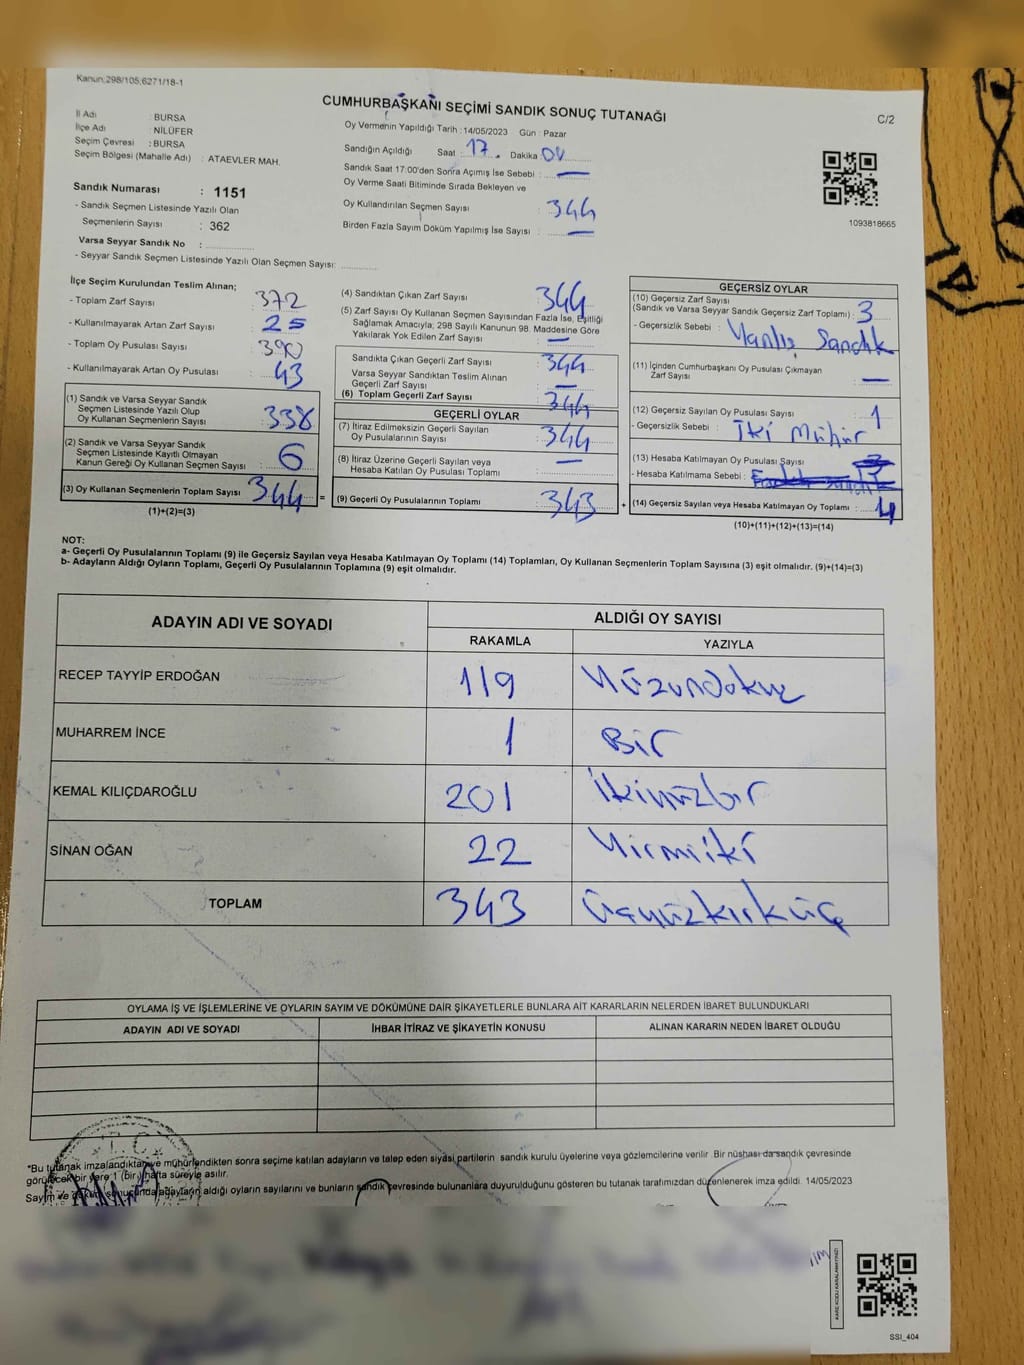 Kanun:298/105;6271/18-1
CUMHURBAŞKANI SEÇİMİ SANDIK SONUÇ TUTANAĞI
C/2
İl Adı : BURSA
İlçe Adı : NİLÜFER
Seçim Çevresi : BURSA
Seçim Bölgesi (Mahalle Adı) : ATAEVLER MAH.
Sandık Numarası : 1151
- Sandık Seçmen Listesinde Yazılı Olan
Seçmenlerin Sayısı : 362
Varsa Seyyar Sandık No :
- Seyyar Sandık Seçmen Listesinde Yazılı Olan Seçmen Sayısı:
Oy Vermenin Yapıldığı Tarih : 14/05/2023 Gün : Pazar
Sandığın Açıldığı Saat : 17 Dakika :
Sandık Saat 17:00'den Sonra Açımış İse Sebebi : —
Oy Verme Saati Bitiminde Sırada Bekleyen ve
Oy Kullandırılan Seçmen Sayısı : 344
Birden Fazla Sayım Döküm Yapılmış İse Sayısı : —
1093818665
İlçe Seçim Kurulundan Teslim Alınan;
- Toplam Zarf Sayısı : 372
- Kullanılmayarak Artan Zarf Sayısı : 25
- Toplam Oy Pusulası Sayısı : 390
- Kullanılmayarak Artan Oy Pusulası : 43
(1) Sandık ve Varsa Seyyar Sandık
Seçmen Listesinde Yazılı Olup
Oy Kullanan Seçmenlerin Sayısı : 338
(2) Sandık ve Varsa Seyyar Sandık
Seçmen Listesinde Kayıtlı Olmayan
Kanun Gereği Oy Kullanan Seçmen Sayısı : 6
(3) Oy Kullanan Seçmenlerin Toplam Sayısı : 344 =
(1)+(2)=(3)
(4) Sandıktan Çıkan Zarf Sayısı : 344
(5) Zarf Sayısı Oy Kullanan Seçmen Sayısından Fazla İse, Eşitliği
Sağlamak Amacıyla; 298 Sayılı Kanunun 98. Maddesine Göre
Yakılarak Yok Edilen Zarf Sayısı : —
Sandıkta Çıkan Geçerli Zarf Sayısı : 344
Varsa Seyyar Sandıktan Teslim Alınan
Geçerli Zarf Sayısı : —
(6) Toplam Geçerli Zarf Sayısı : 344
GEÇERLİ OYLAR
(7) İtiraz Edilmeksizin Geçerli Sayılan
Oy Pusulalarının Sayısı : 344
(8) İtiraz Üzerine Geçerli Sayılan veya
Hesaba Katılan Oy Pusulası Toplamı : —
(9) Geçerli Oy Pusulalarının Toplamı : 343 +
GEÇERSİZ OYLAR
(10) Geçersiz Zarf Sayısı
(Sandık ve Varsa Seyyar Sandık Geçersiz Zarf Toplamı) : 3
- Geçersizlik Sebebi : Yanlış Sandık
(11) İçinden Cumhurbaşkanı Oy Pusulası Çıkmayan
Zarf Sayısı : —
(12) Geçersiz Sayılan Oy Pusulası Sayısı : 1
- Geçersizlik Sebebi : İki Mühür
(13) Hesaba Katılmayan Oy Pusulası Sayısı :
- Hesaba Katılmama Sebebi :
(14) Geçersiz Sayılan veya Hesaba Katılmayan Oy Toplamı : 4
(10)+(11)+(12)+(13)=(14)
NOT:
a- Geçerli Oy Pusulalarının Toplamı (9) ile Geçersiz Sayılan veya Hesaba Katılmayan Oy Toplamı (14) Toplamları, Oy Kullanan Seçmenlerin Toplam Sayısına (3) eşit olmalıdır. (9)+(14)=(3)
b- Adayların Aldığı Oyların Toplamı, Geçerli Oy Pusulalarının Toplamına (9) eşit olmalıdır.
ADAYIN ADI VE SOYADI ALDIĞI OY SAYISI
RAKAMLA YAZIYLA
RECEP TAYYİP ERDOĞAN 119 Yüzondokuz
MUHARREM İNCE 1 Bir
KEMAL KILIÇDAROĞLU 201 İkiyüzbir
SİNAN OĞAN 22 Yirmiiki
TOPLAM 343 Üçyüzkırküç
OYLAMA İŞ VE İŞLEMLERİNE VE OYLARIN SAYIM VE DÖKÜMÜNE DAİR ŞİKAYETLERLE BUNLARA AİT KARARLARIN NELERDEN İBARET BULUNDUKLARI
ADAYIN ADI VE SOYADI İHBAR İTİRAZ VE ŞİKAYETİN KONUSU ALINAN KARARIN NEDEN İBARET OLDUĞU
*Bu tutanak imzalandıktan ve mühürlendikten sonra seçime katılan adayların ve talep eden siyasi partilerin sandık kurulu üyelerine veya gözlemcilerine verilir. Bir nüshası da sandık çevresinde
görülecek bir yere 1 (bir) hafta süreyle asılır.
Sayım ve döküm sonucunda adayların aldığı oyların sayılarını ve bunların sandık çevresinde bulunanlara duyurulduğunu gösteren bu tutanak tarafımızdan düzenlenerek imza edildi. 14/05/2023
KARE KODU KARALAMAYINIZ!
SSI_404